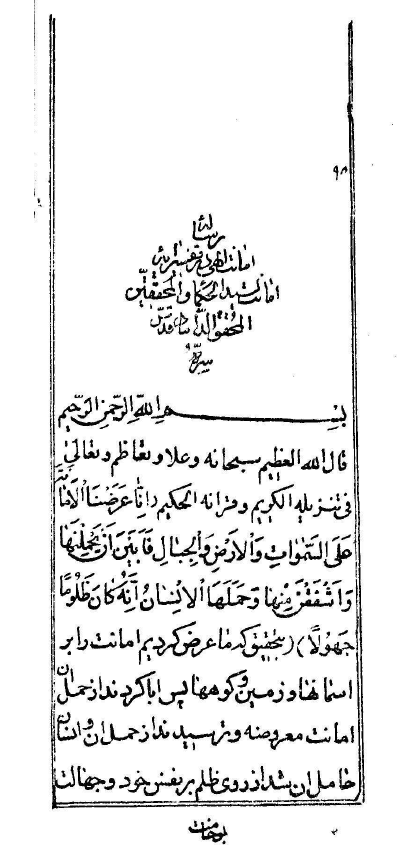 ۹۸
رسالهٔ
امانت الهی در تفسیر آیهٔ
امانت لسید الحکماء والمحققین
المحقق الداماد قدس
سره
بسم الله الرحمن الرحیم
قال الله العظیم سبحانه وعلا وتعاظم وتعالی
فی تنزیله الکریم وقرانه الحکیم (اِنّا عَرَضْنَا الْاَمانَةَ
عَلَی السَّمٰواتِ وَالْاَرْضِ وَالْجِبٰالِ فَاَبَیْنَ اَنْ یَحْمِلْنَهٰا
وَاَشْفَقْنَ مِنْهٰا وَحَمَلَهَا الْاِنْسٰانُ اِنَّهُ کٰانَ ظَلُومًا
جَهُولًا) (بتحقیق که ما عرض کردیم امانت را بر
اسمانها و زمین و کوهها پس ابا کردند از حمل ان
امانت معروضه و ترسیدند از حمل ان و انسان
حامل ان شد از روی ظلم بر نفس خود و جهالت